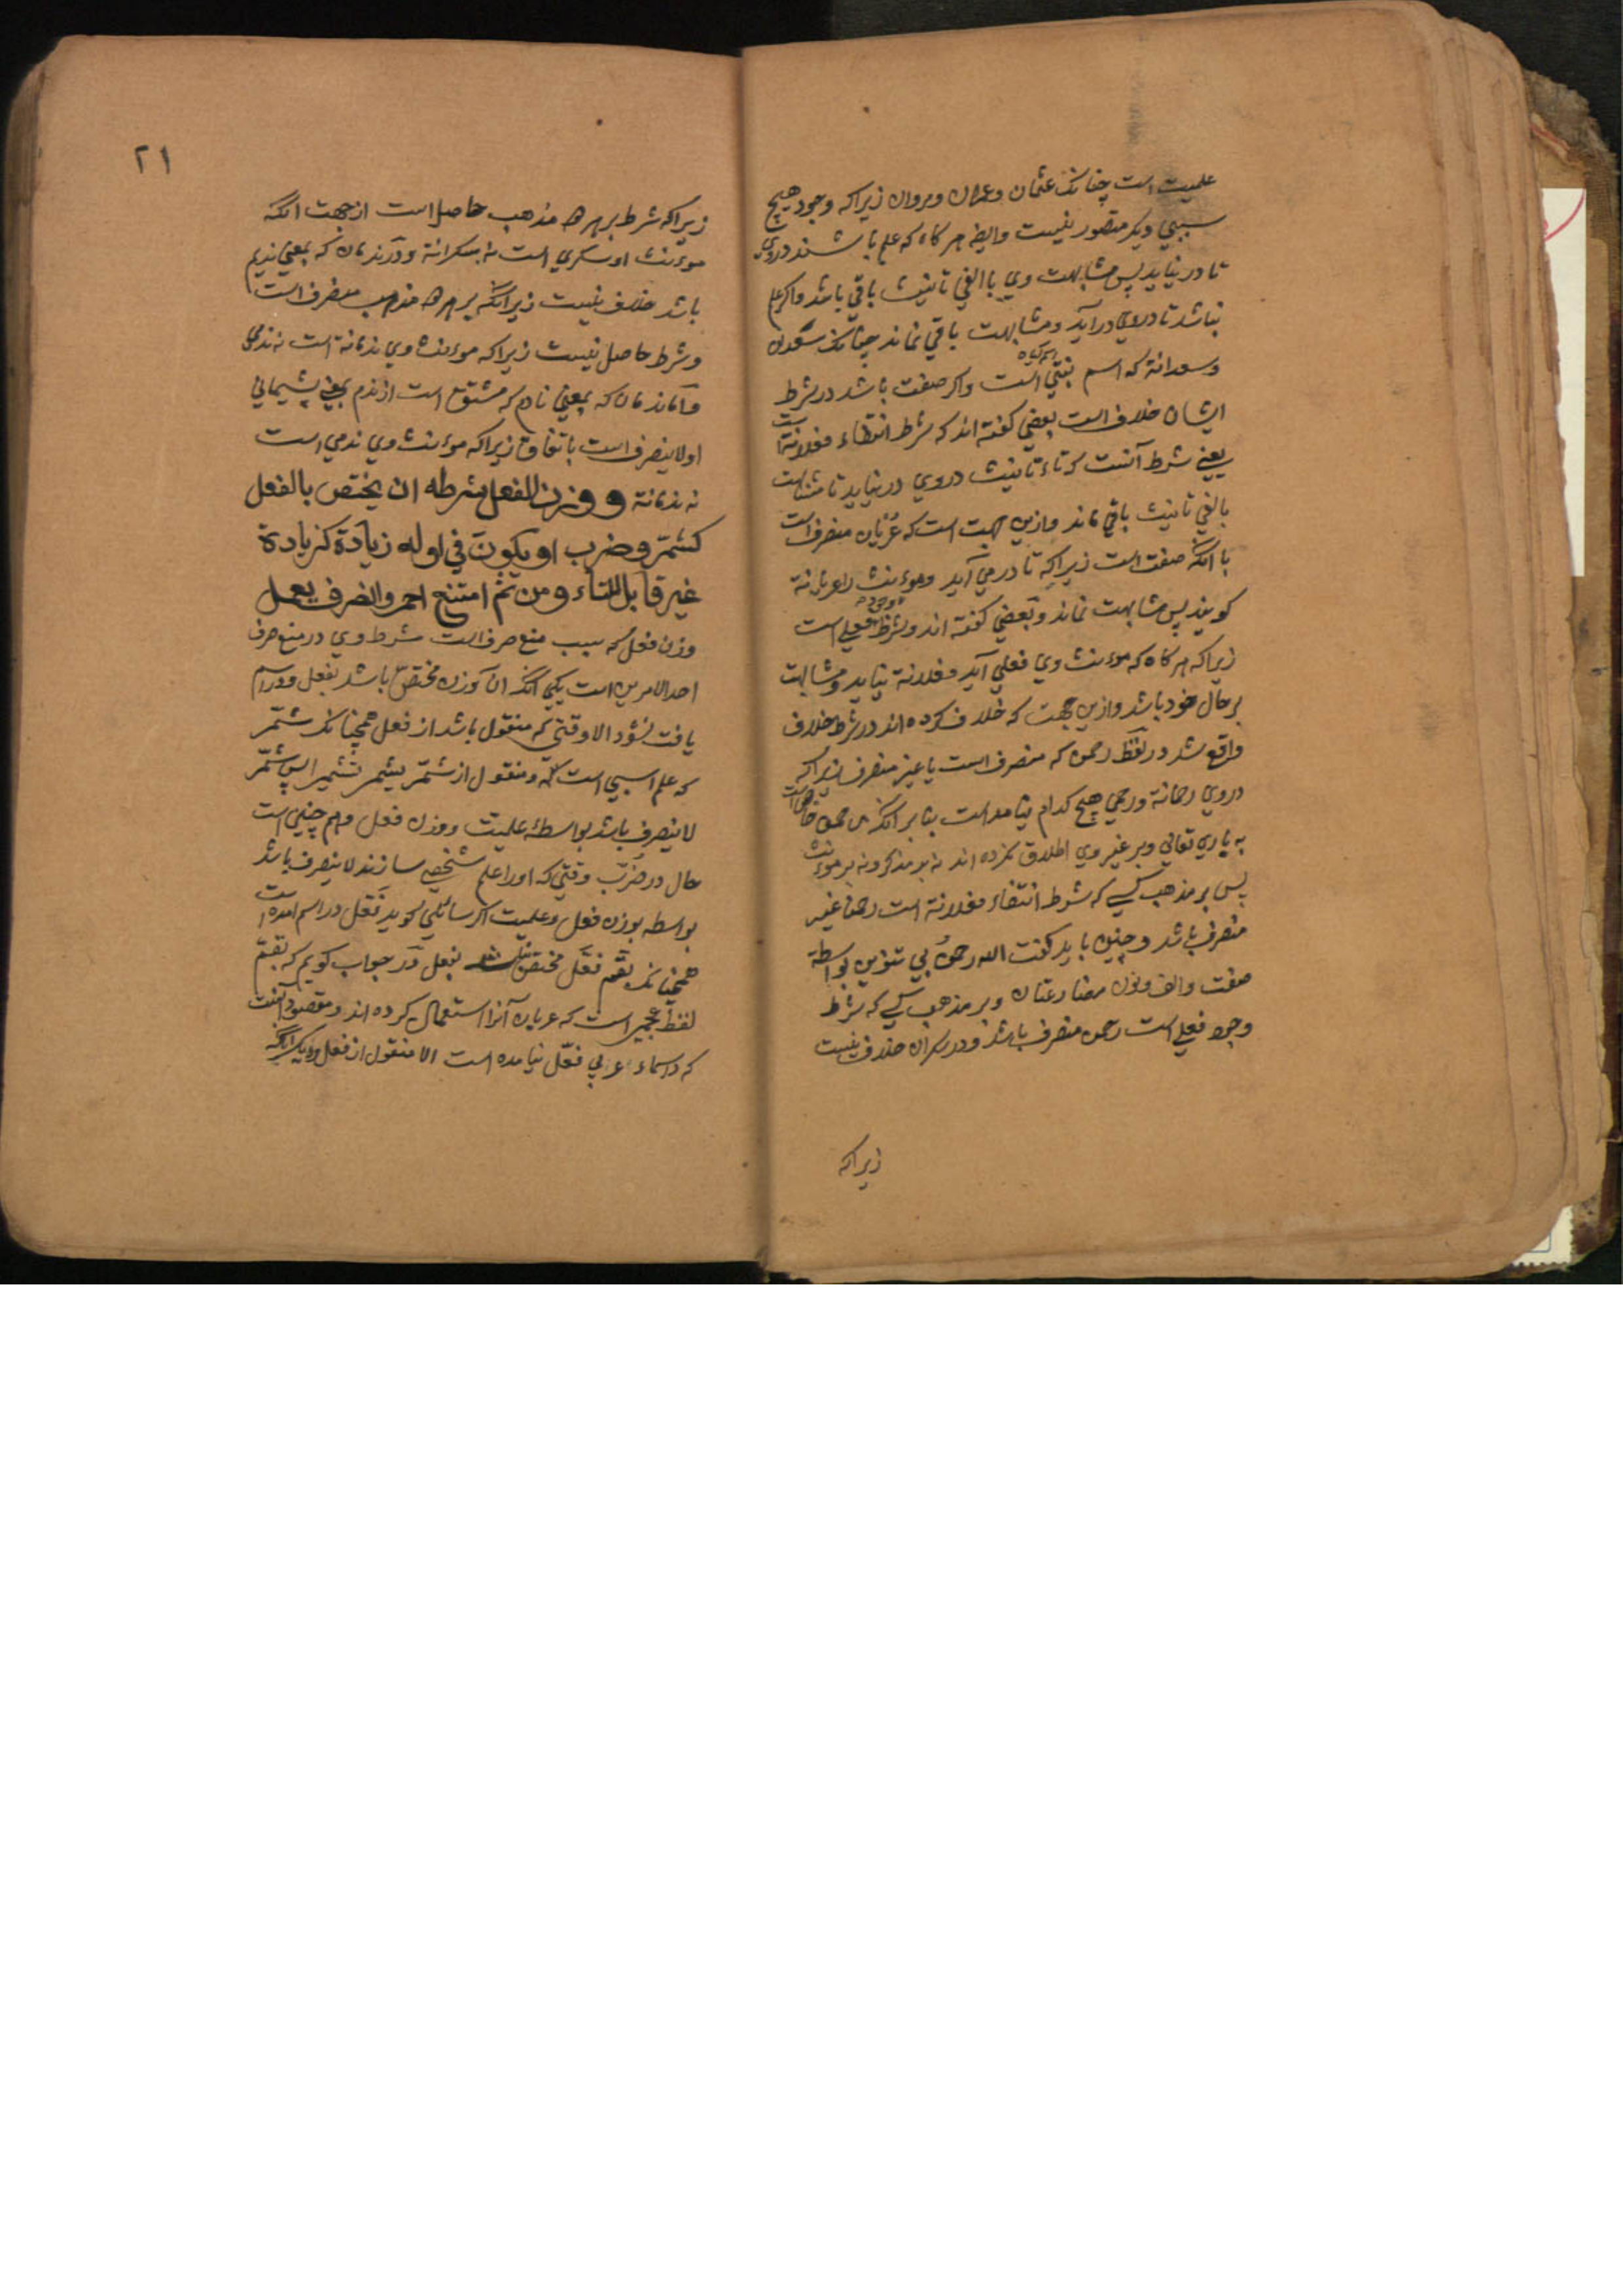 علمیت است چنانک عثمان و عمران و مروان زیراکه وجود هیچ
سببی دیکر متصور نیست وایضا هر کاه که علم باشند در وی
تا در نیاید پس مشابهت وی با الفی تانیث باقی باشد واکر علم
نباشد تا در وی در آید و مشابهت باقی نماند چنانک سعدان
و سعدانة که اسم نبتی است واکر صفت باشد در شرط
اسم کیاه
ایشان خلاف است بعضی کفته اند که شرط انتفاء فعلانة است
یعنی شرط آنست که تاء تانیث در وی در نیاید تا مشابهت
بالفی تانیث باقی ماند وازین جهت است که عُرْیان منصرف است
با آنکه صفت است زیراکه تا در می آید و موءنث را عریانة
کویند پس مشابهت نماند و بعضی کفته اند و شرط وجود فعلی است
زیراکه هر کاه که موءنث وی فعلی آید فعلانة نیاید و مشابهت
بر حال خود باشد وازین جهت که خلاف کرده اند در شرط خلاف
واقع شد در لفظ رحمن که منصرف است یا غیر منصرف زیراکه
در وی رحمانة و رحمی هیچ کدام نیامده است بنا بر آنکه رحمن خاص است
به باری تعالی و بر غیر وی اطلاق نکرده اند نه بر مذکر و نه بر موءنث
پس بر مذهب کسی که شرط انتفاء فعلانة است رحمن غیر
منصرف باشد و چنین باید کفت الله رحمنُ بی تنوین بواسطهٔ
صفت والف و نون مضارعتان و بر مذهب کسی که شرط
وجود فعلی است رحمن منصرف باشد و در سکران خلاف نیست
زیراکه
۲۱
زیراکه شرط بر هر دو مذهب حاصل است از جهت آنکه
موءنث او سکری است نه سکرانة و در ندمان که بمعنی ندیم
باشد خلاف نیست زیراکه بر هر دو مذهب منصرف است
و شرط حاصل نیست زیراکه موءنث وی ندمانة است نه ندمی
واما ندمان که بمعنی نادم که مشتق است از ندم بمعنی پشیمانی
او لاینصرف است باتفاق زیراکه موءنث وی ندمی است
نه ندمانة و وزن الفعل شرطه ان یختص بالفعل
کشمّر وضرب او یکون فی اوله زیادة کزیادته
غیر قابل للتاء ومن ثم امتنع احمر وانصرف یعمل
وزن فعل که سبب منع صرف است شرط وی در منع صرف
احد الامرین است یکی آنکه ان وزن مختص باشد بفعل و در اسم
یافت نشود الا وقتی که منقول باشد از فعل همچنانک شمّر
که علم اسبی است و منقول از شمّر یشمر تشمیر پس شمّر
لاینصرف باشد بواسطهٔ علمیت و وزن فعل و هم چنین است
حال در ضُرِب وقتی که او را علم شخصی سازند لاینصرف باشد
بواسطه بوزن فعل و علمیت اکر سائلی کوید فعّل در اسم امده است
همچنانک بقّم فعّل مختص نباشد بفعل در جواب کویم که بقّم
لفظ عجمی است که عربان آنرا استعمال کرده اند و مقصود آنست
که در اسماء عربی فعّل نیامده است الا منقول از فعل و دیکر آنکه